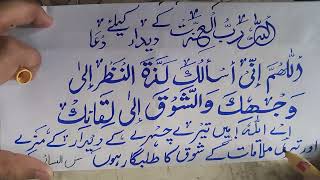 اللہ رب العزت کے دیدار کیلئے دعا
اَللّٰهُمَّ اِنِّی أَسْأَلُكَ لَذَّةَ النَّظَرِ اِلٰى
وَجْهِكَ وَالشَّوْقَ اِلٰى لِقَائِكَ
اے اللہ! میں تیرے چہرے کے دیدار کے مزے
اور تیری ملاقات کے شوق کا طلبگار ہوں